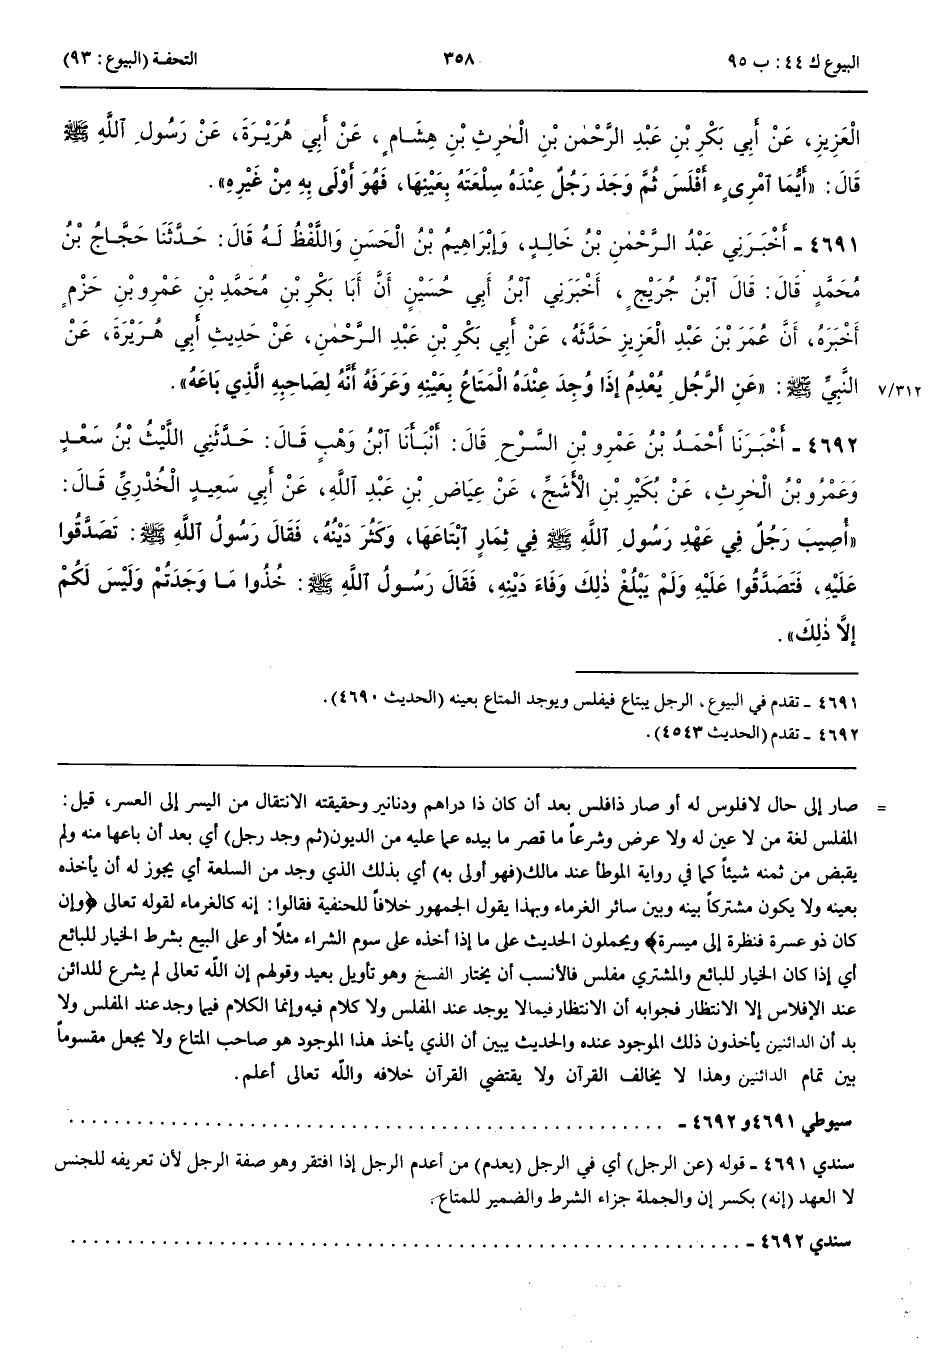 البيوع ك ٤٤: ب ٩٥ ٣٥٨ التحفة (البيوع: ٩٣)
الْعَزِيزِ، عَنْ أَبِي بَكْرِ بْنِ عَبْدِ الرَّحْمٰنِ بْنِ الْحٰرِثِ بْنِ هِشَامٍ، عَنْ أَبِي هُرَيْرَةَ، عَنْ رَسُولِ ٱللَّهِ ﷺ
قَالَ: «أَيُّمَا ٱمْرِىءٍ أَفْلَسَ ثُمَّ وَجَدَ رَجُلٌ عِنْدَهُ سِلْعَتَهُ بِعَيْنِهَا، فَهُوَ أَوْلَى بِهِ مِنْ غَيْرِهِ».
٤٦٩١ ـ أَخْبَرَنِي عَبْدُ الرَّحْمٰنِ بْنُ خَالِدٍ، وَإِبْرَاهِيمُ بْنُ الْحَسَنِ وَاللَّفْظُ لَهُ قَالَ: حَدَّثَنَا حَجَّاجُ بْنُ
مُحَمَّدٍ قَالَ: قَالَ ٱبْنُ جُرَيْجٍ، أَخْبَرَنِي ٱبْنُ أَبِي حُسَيْنٍ أَنَّ أَبَا بَكْرِ بْنِ مُحَمَّدِ بْنِ عَمْرِو بْنِ حَزْمٍ
أَخْبَرَهُ، أَنَّ عُمَرَ بْنَ عَبْدِ الْعَزِيزِ حَدَّثَهُ، عَنْ أَبِي بَكْرِ بْنِ عَبْدِ الرَّحْمٰنِ، عَنْ حَدِيثِ أَبِي هُرَيْرَةَ، عَنْ
النَّبِيِّ ﷺ: «عَنِ الرَّجُلِ يُعْدِمُ إِذَا وُجِدَ عِنْدَهُ الْمَتَاعُ بِعَيْنِهِ وَعَرَفَهُ أَنَّهُ لِصَاحِبِهِ الَّذِي بَاعَهُ». ٧/٣١٢
٤٦٩٢ ـ أَخْبَرَنَا أَحْمَدُ بْنُ عَمْرِو بْنِ السَّرْحِ قَالَ: أَنْبَأَنَا ٱبْنُ وَهْبٍ قَالَ: حَدَّثَنِي اللَّيْثُ بْنُ سَعْدٍ
وَعَمْرُو بْنُ الْحٰرِثِ، عَنْ بُكَيْرِ بْنِ الْأَشَجِّ، عَنْ عِيَاضِ بْنِ عَبْدِ ٱللَّهِ، عَنْ أَبِي سَعِيدٍ الْخُدْرِيِّ قَالَ:
«أُصِيبَ رَجُلٌ فِي عَهْدِ رَسُولِ ٱللَّهِ ﷺ فِي ثِمَارٍ ٱبْتَاعَهَا، وَكَثُرَ دَيْنُهُ، فَقَالَ رَسُولُ ٱللَّهِ ﷺ: تَصَدَّقُوا
عَلَيْهِ، فَتَصَدَّقُوا عَلَيْهِ وَلَمْ يَبْلُغْ ذٰلِكَ وَفَاءَ دَيْنِهِ، فَقَالَ رَسُولُ ٱللَّهِ ﷺ: خُذُوا مَا وَجَدْتُمْ وَلَيْسَ لَكُمْ
إِلَّا ذٰلِكَ».
٤٦٩١ ـ تقدم في البيوع، الرجل يبتاع فيفلس ويوجد المتاع بعينه (الحديث ٤٦٩٠).
٤٦٩٢ ـ تقدم (الحديث ٤٥٤٣).
= صار إلى حال لافلوس له أو صار ذافلس بعد أن كان ذا دراهم ودنانير وحقيقته الانتقال من اليسر إلى العسر، قيل:
المفلس لغة من لا عين له ولا عرض وشرعاً ما قصر ما بيده عما عليه من الديون(ثم وجد رجل) أي بعد أن باعها منه ولم
يقبض من ثمنه شيئاً كما في رواية الموطأ عند مالك(فهو أولى به) أي بذلك الذي وجد من السلعة أي يجوز له أن يأخذه
بعينه ولا يكون مشتركاً بينه وبين سائر الغرماء وبهذا يقول الجمهور خلافاً للحنفية فقالوا: إنه كالغرماء لقوله تعالى ﴿وإن
كان ذو عسرة فنظرة إلى ميسرة﴾ ويحملون الحديث على ما إذا أخذه على سوم الشراء مثلًا أو على البيع بشرط الخيار للبائع
أي إذا كان الخيار للبائع والمشتري مفلس فالأنسب أن يختار الفسخ وهو تأويل بعيد وقولهم إن الله تعالى لم يشرع للدائن
عند الإفلاس إلا الانتظار فجوابه أن الانتظار فيمالا يوجد عند المفلس ولا كلام فيه وإنما الكلام فيما وجد عند المفلس ولا
بد أن الدائنين يأخذون ذلك الموجود عنده والحديث يبين أن الذي يأخذ هذا الموجود هو صاحب المتاع ولا يجعل مقسوماً
بين تمام الدائنين وهذا لا يخالف القرآن ولا يقتضي القرآن خلافه والله تعالى أعلم.
سيوطي ٤٦٩١ و ٤٦٩٢ ـ . . . . . . . . . . . . . . . . . . . . . . . . . . . . . .
سندي ٤٦٩١ ـ قوله (عن الرجل) أي في الرجل (يعدم) من أعدم الرجل إذا افتقر وهو صفة الرجل لأن تعريفه للجنس
لا العهد (إنه) بكسر إن والجملة جزاء الشرط والضمير للمتاع.
سندي ٤٦٩٢ ـ . . . . . . . . . . . . . . . . . . . . . . . . . . . . . .